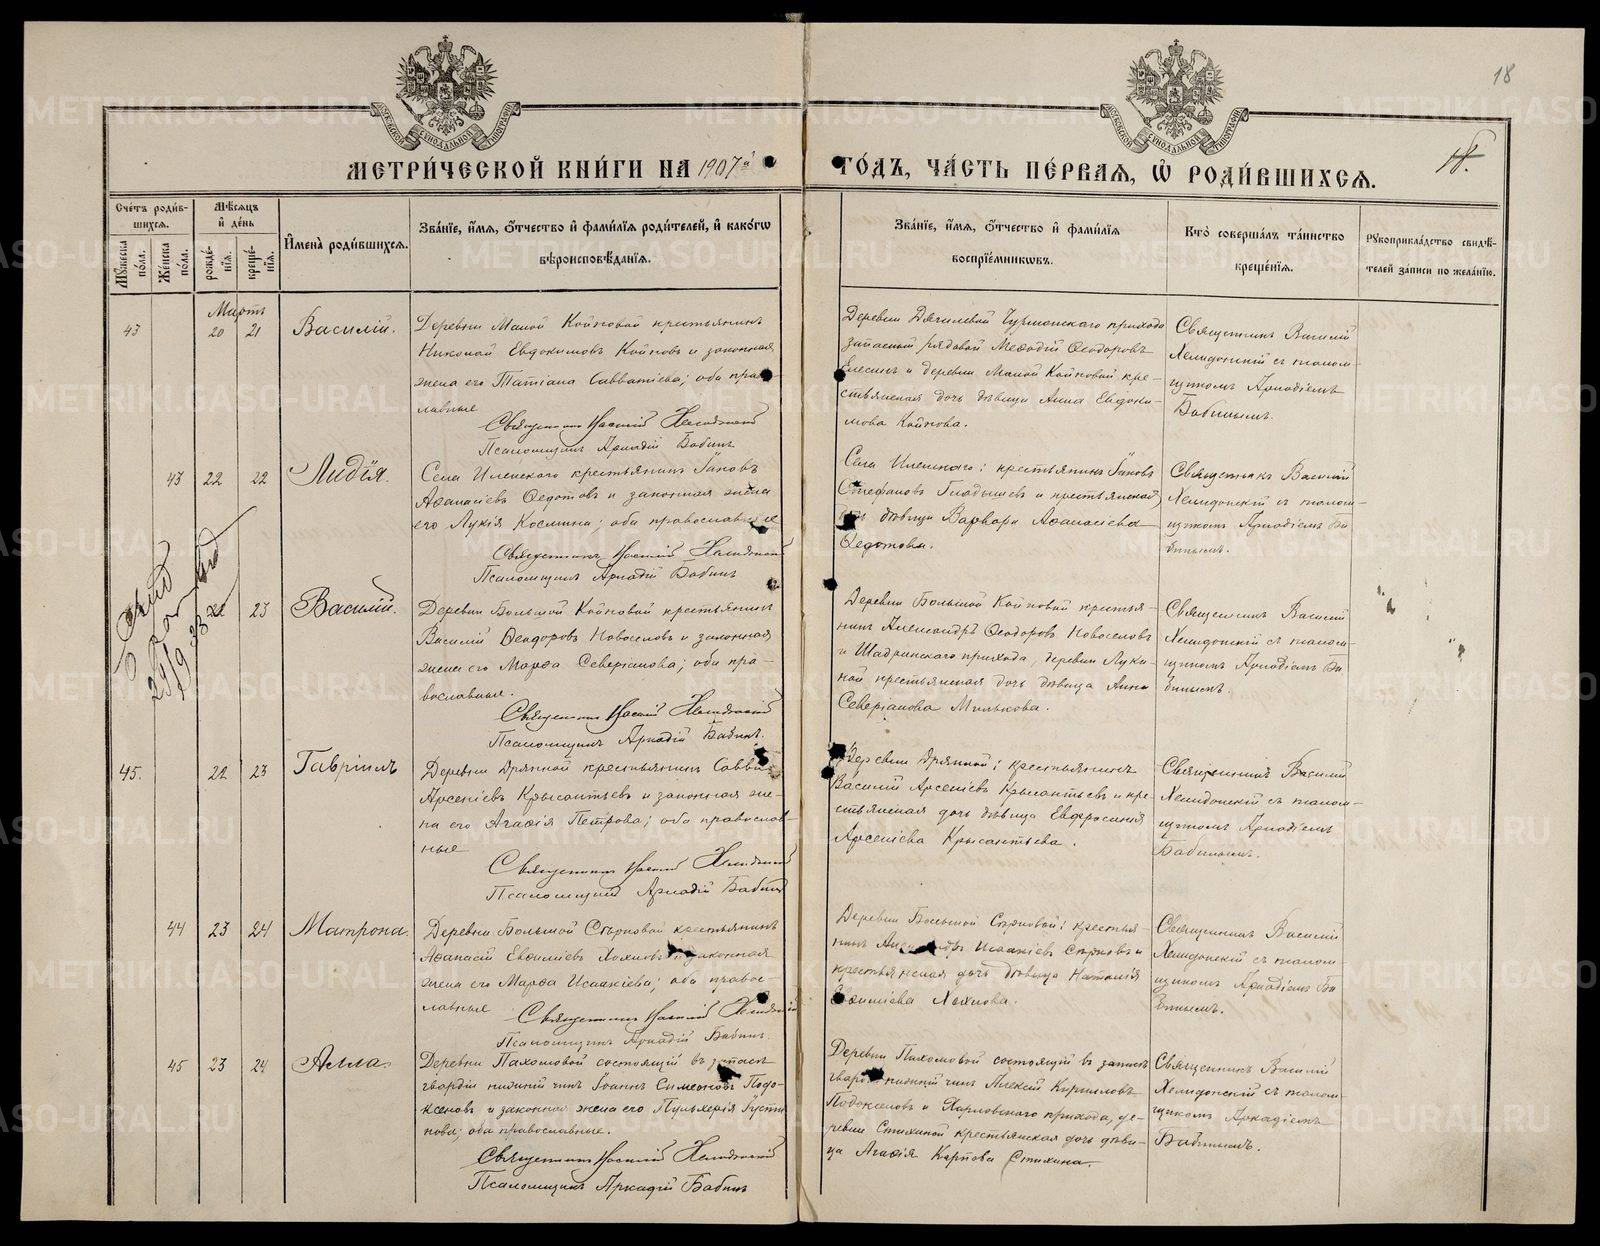 18
МЕТРИ́ЧЕСКОЙ КНИ́ГИ НА 1907й
ГО́ДЪ, ЧА́СТЬ ПЕ́РВАЯ, Ѡ҆ РОДИ́ВШИХСЯ.
18.
Сче́тъ роди́в-
шихся.
Мѣ́сяцъ
и҆ де́нь
И҆мена̀ роди́вшихся.
Зва́нїе, и҆́мя, ѻ҆́тчество и҆ фами́лїя роди́телей, и҆ како́гѡ
вѣроисповѣ́данїя.
Зва́нїе, и҆́мя, ѻ҆́тчество и҆ фами́лїя
воспрїе́мникѡвъ.
Кто̀ соверша́лъ та́инство
креще́нїя.
Рукоприкла́дство свидѣ́-
телей за́писи по жела́нїю.
Му́жеска по́ла.
Же́нска по́ла.
рожде́-
нїя.
креще́-
нїя.
Мартъ
43 20 21 Василій.
Деревни Малой Койновой крестьянинъ
Николай Евдокимовъ Койновъ и законная
жена его Татіана Савватіева; оба право-
лавные
Священникъ Василій Хелидонскій
Псаломщикъ Аркадій Бабинъ
Деревни Дягилевой Чурманскаго прихода
запасный рядовой Меѳодій Ѳеодоровъ
и деревни Малой Койновой кре-
стьянская дочь дѣвица Анна Евдоки-
мова Койнова.
Священникъ Василій
Хелидонскій съ псалом-
щикомъ Аркадіемъ
Бабинымъ.
43 22 22 Лидія.
Села Иленского крестьянинъ Іаковъ
Аѳанасіевъ Ѳедотовъ и законная жена
его Лукія Космина; оба православные
Священникъ Василій Хелидонскій
Псаломщикъ Аркадій Бабинъ
Села Иленского: крестьянинъ Іаковъ
Стефановъ Гладышевъ и крестьянская
дочь дѣвица Варвара Аѳанасіева
Ѳедотова.
Священникъ Василій
Хелидонскій съ псалом-
щикомъ Аркадіемъ Ба-
бинымъ.
23 Василій.
Деревни Большой Койновой крестьянинъ
Василій Ѳеодоровъ Новоселовъ и законная
жена его Марѳа Северіанова; оба пра-
вославные.
Священникъ Василій Хелидонскій
Псаломщикъ Аркадій Бабинъ.
Деревни Большой Койновой крестья-
нинъ Александръ Ѳеодоровъ Новоселовъ
и Шадринскаго прихода, деревни Луки-
ной крестьянская дочь дѣвица Анна
Северіанова Милькова.
Священникъ Василій
Хелидонскій съ псалом-
щикомъ Аркадіемъ Ба-
бинымъ.
45. 22 23 Гавріилъ
Деревни Дрянной крестьянинъ Савва
Арсеніевъ Крысантьевъ и законная же-
на его Агаѳія Петрова; оба православ-
ные
Священникъ Василій Хелидонскій
Псаломщикъ Аркадій Бабинъ
Деревни Дрянной: крестьянинъ
Василій Арсеніевъ Крысантьевъ и кре-
стьянская дочь дѣвица Евфросинія
Арсеніева Крысантьева.
Священникъ Василій
Хелидонскій съ псалом-
щикомъ Аркадіемъ
Бабинымъ.
44 23 24 Матрона.
Деревни Большой Сѣрковой крестьянинъ
Аѳанасій Евѳиміевъ Хохловъ и законная
жена его Марѳа Исаакіева; оба правос-
лавные
Священникъ Василій Хелидонскій
Псаломщикъ Аркадій Бабинъ.
Деревни Большой Сѣрковой: крестья-
нинъ Александръ Исаакіевъ Сѣрковъ и
крестьянская дочь дѣвица Наталія
Евѳиміева Хохлова.
Священникъ Василій
Хелидонскій съ псалом-
щикомъ Аркадіемъ Ба-
бинымъ.
45 23 24 Алла
Деревни Пахомовой состоящій въ запасѣ
гвардіи нижній чинъ Іоаннъ Симеоновъ Подо-
ксеновъ и законная жена его Пульхерія Іусти-
нова; оба православные.
Священникъ Василій Хелидонскій
Псаломщикъ Аркадій Бабинъ
Деревни Пахомовой состоящій въ запасѣ
гвардіи нижній чинъ Алексій Кирилловъ
Подокселовъ и Харловскаго прихода, де-
ревни Стихиной крестьянская дочь дѣви-
ца Агаѳія Карпова Стихина.
Священникъ Василій
Хелидонскій съ псалом-
щикомъ Аркадіемъ
Бабинымъ.
METRIKI.GASO-URAL.RU